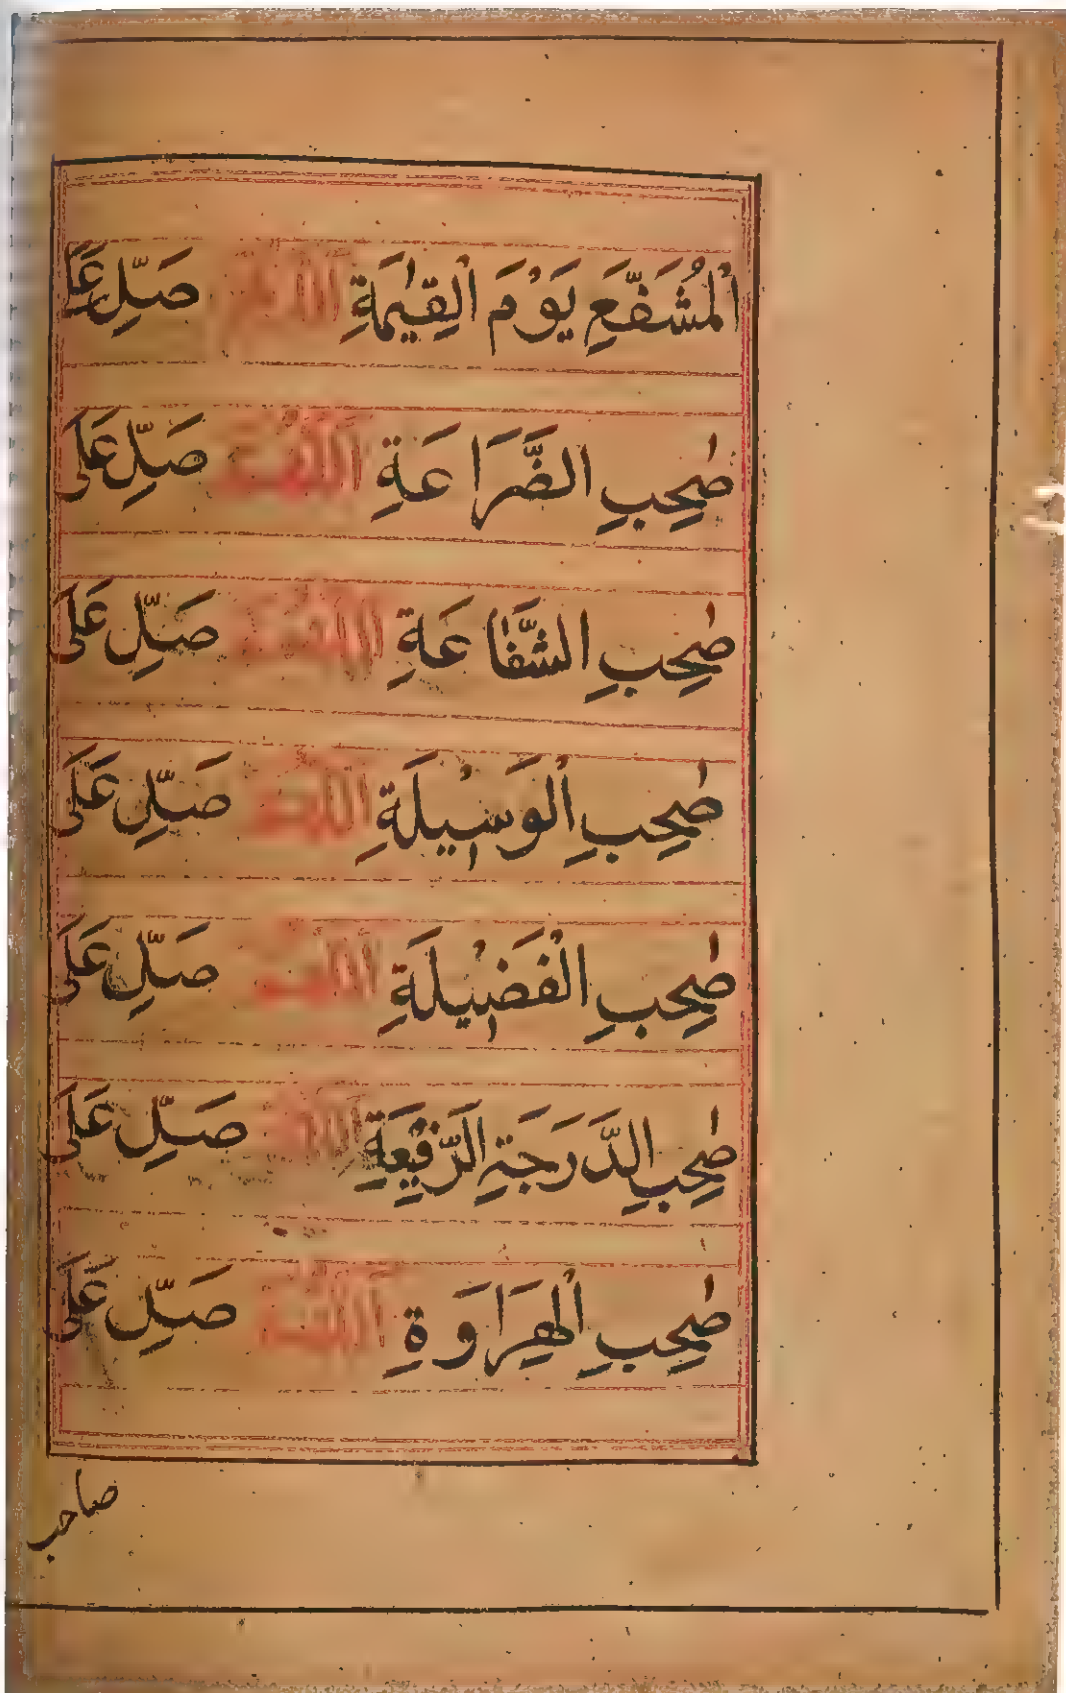 الْمُشَفَّعِ يَوْمَ الْقِيٰمَةِ اللهم صَلِّ عَلَى
صٰحِبِ الضَّرَاعَةِ اللهم صَلِّ عَلَى
صٰحِبِ الشَّفَاعَةِ اللهم صَلِّ عَلَى
صٰحِبِ الْوَسِيْلَةِ اللهم صَلِّ عَلَى
صٰحِبِ الْفَضِيْلَةِ اللهم صَلِّ عَلَى
صٰحِبِ الدَّرَجَةِ الرَّفِيْعَةِ اللهم صَلِّ عَلَى
صٰحِبِ الْهِرَاوَةِ اللهم صَلِّ عَلَى
صاحب